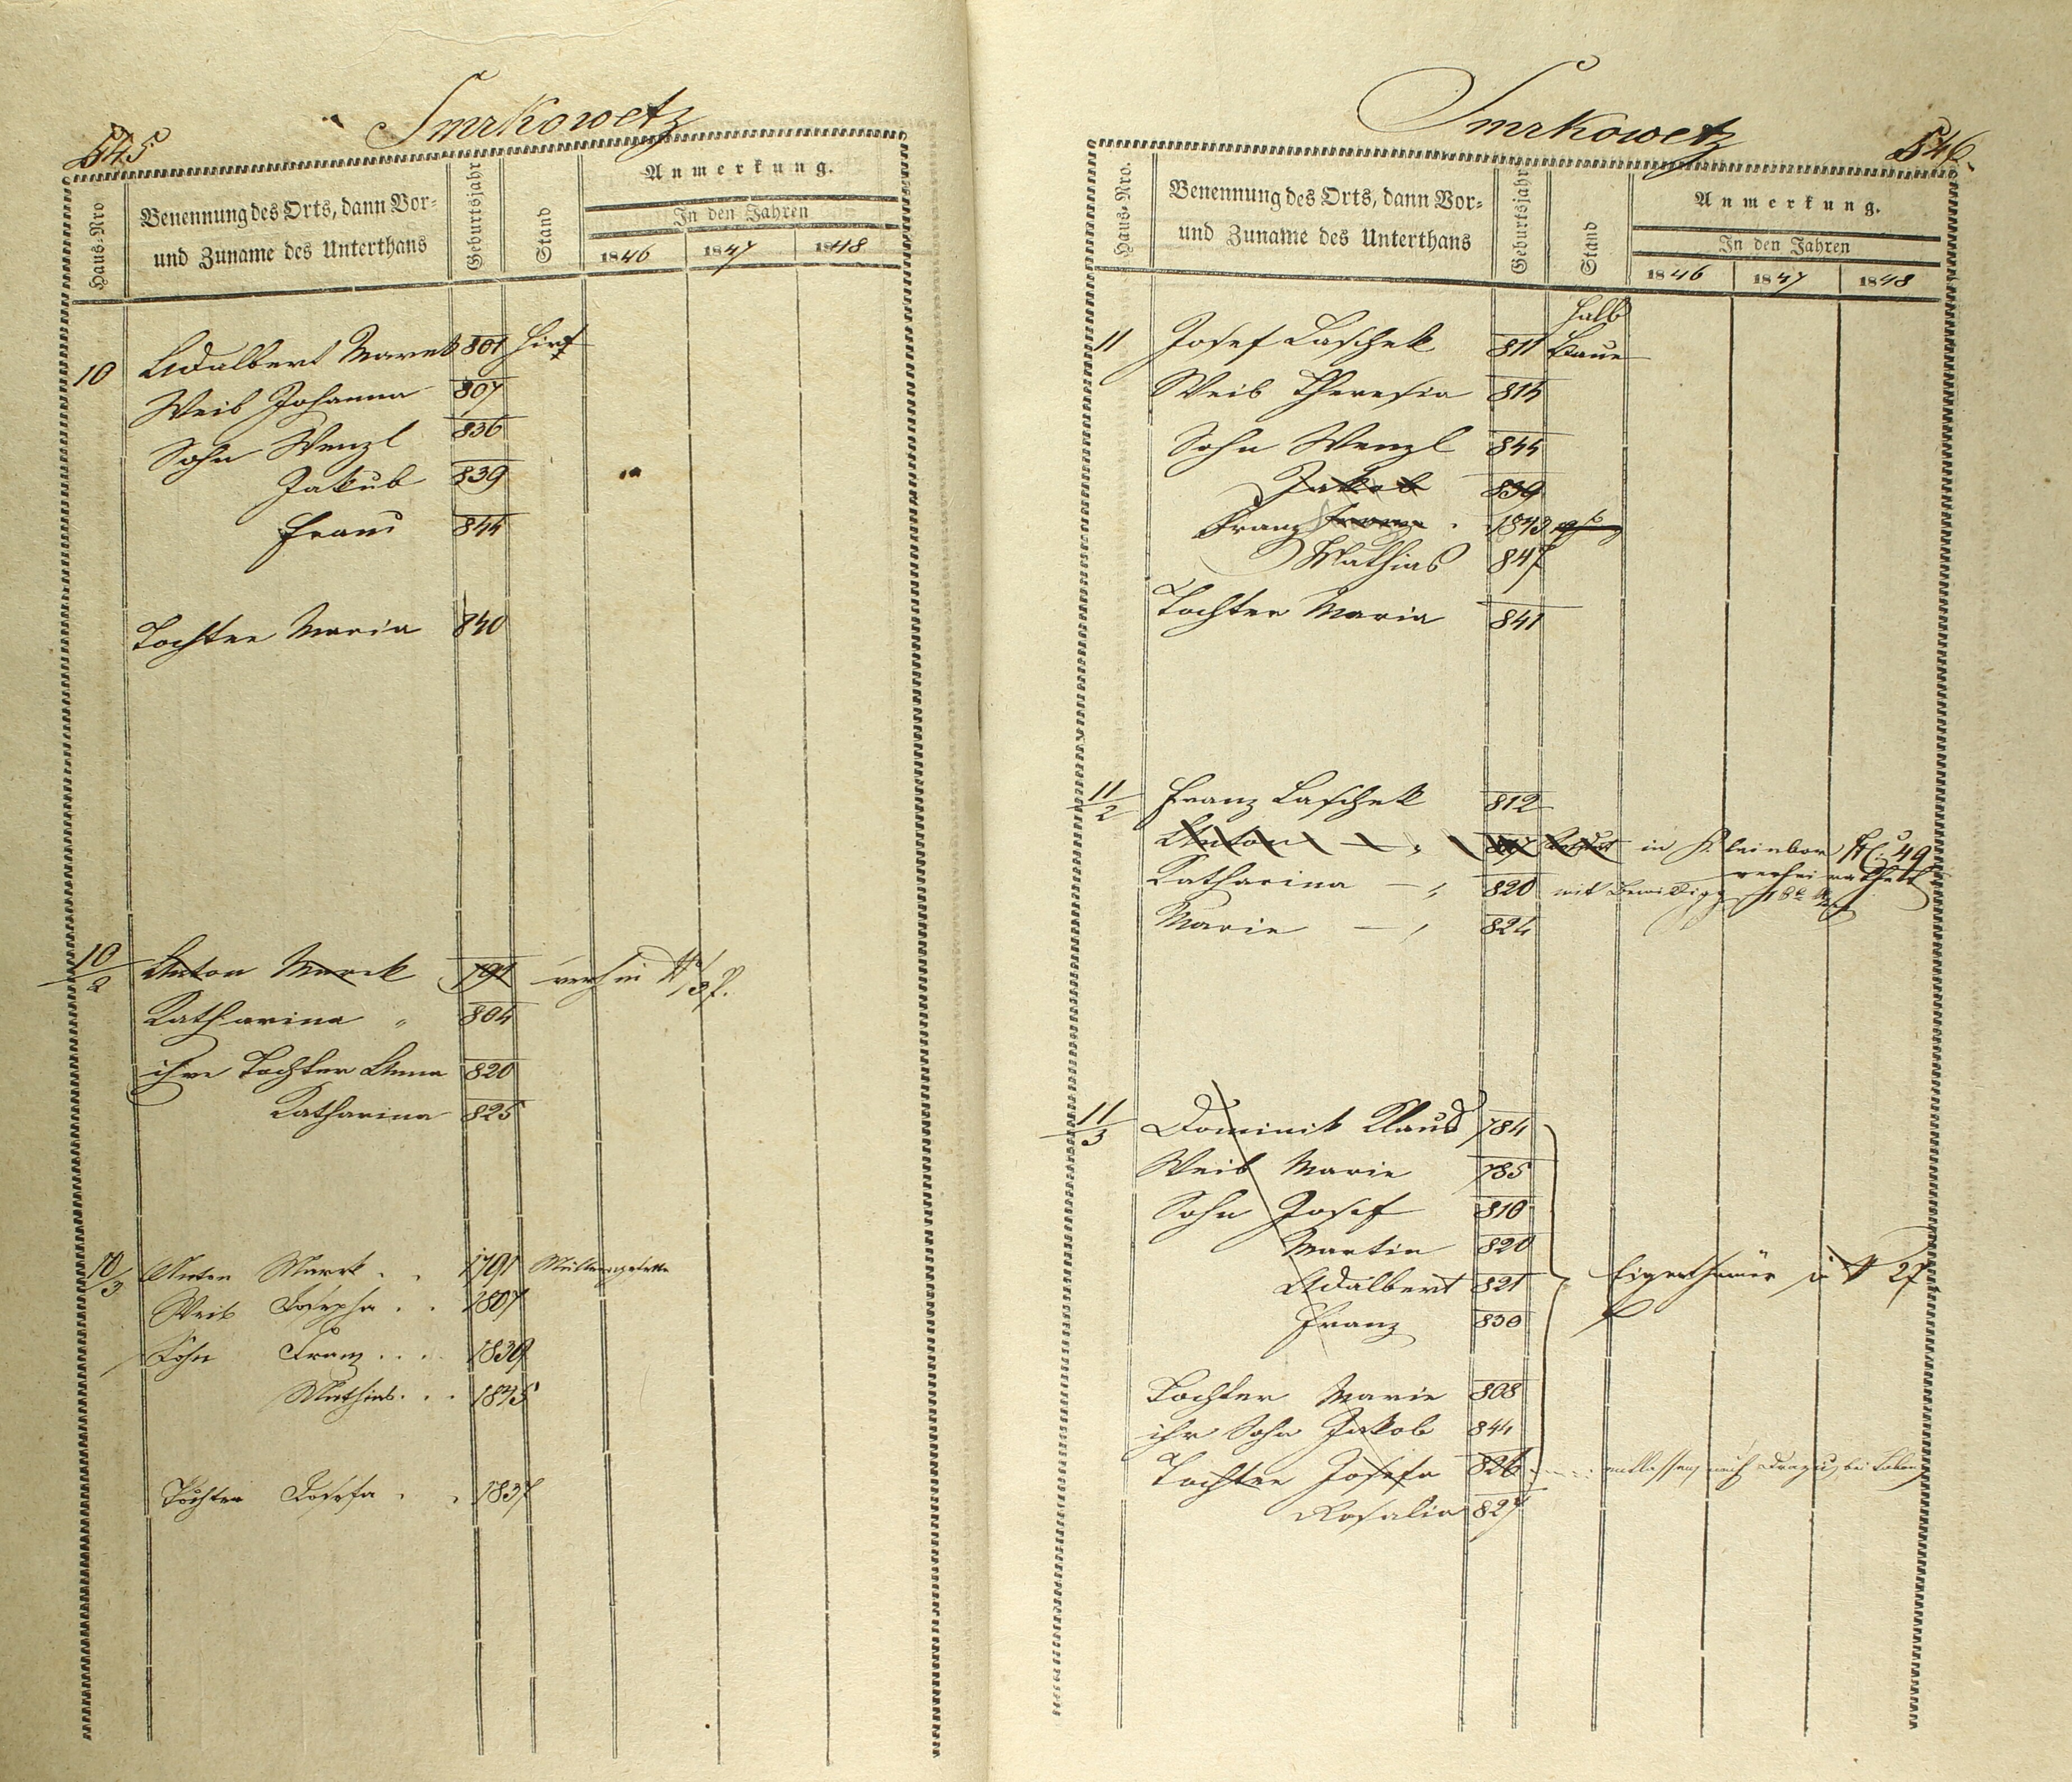 Smrkowetz
545
Haus-Nro
Benennung des Orts, dann Vor-
und Zuname des Unterthans
Geburtsjahr
Stand
Anmerkung.
In den Jahren
1846 1847 1848
10 Adalbert Marek 801 Hirt
Weib Johanna 807
Sohn Wenzl 836
Jakub 839
Franz 844
Tochter Maria 840
10/2 Anton Marek 791 N 37.
Katharina " 804
ihre Tochter Anna 820
Katharina 825
10/3 Anton Marek . . 1791
Weib Josepha . . 1807
Sohn Franz . . . 1839
Mathias . . . 1845
Tochter Josefa . . 1837
Smrkowetz
546.
Haus-Nro.
Benennung des Orts, dann Vor-
und Zuname des Unterthans
Geburtsjahr
Stand
Anmerkung.
In den Jahren
1846 1847 1848
halb
11 Josef Laschek 811 Bauer
Weib Theresia 815
Sohn Wenzl 844
Jakob 839
Franz 1843
Mathias 847
Tochter Maria 841
11/2 Franz Laschek 812
Anton — " in Kleinbor N 49
verheirathet
Katharina — " 820 mit
Marie — " 824
11/3 Dominik Klaus 784
Weib Marie 785
Sohn Josef 810
Martin 820
Adalbert 821
Eigenthümer in N 27
Franz 830
Tochter Marie 808
ihr Sohn Jakob 844
Tochter Josefa 826 entlassen nach bei
Rosalia 827